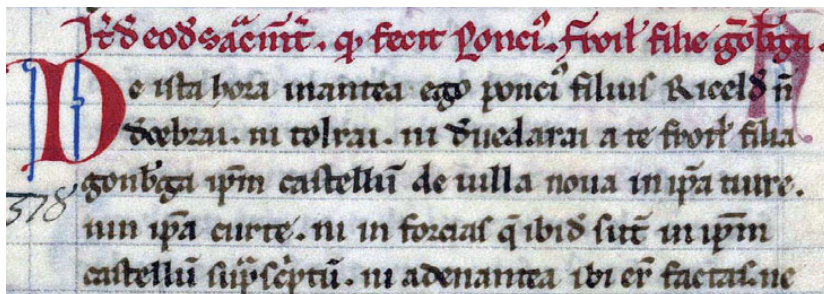 Itē de eodē sac̄mt̄. qđ fecit Ponci᷒. Froil̄ filie gōb̄ga.
De ista hora inantea ego ponci᷒ filius Ricelđ n̄
đcebrai. ni tolrai. ni đuedarai a te froil̄ filia
gonb̄ga ip̄m castellū de uilla noua in ip̄a turre.
nin ip̄a curte. ni in forcias q̄ ibiđ sūt in ip̄m
castellū sup̄sc̄ptū. ni adenantea ibi er̄ factas. ne
578